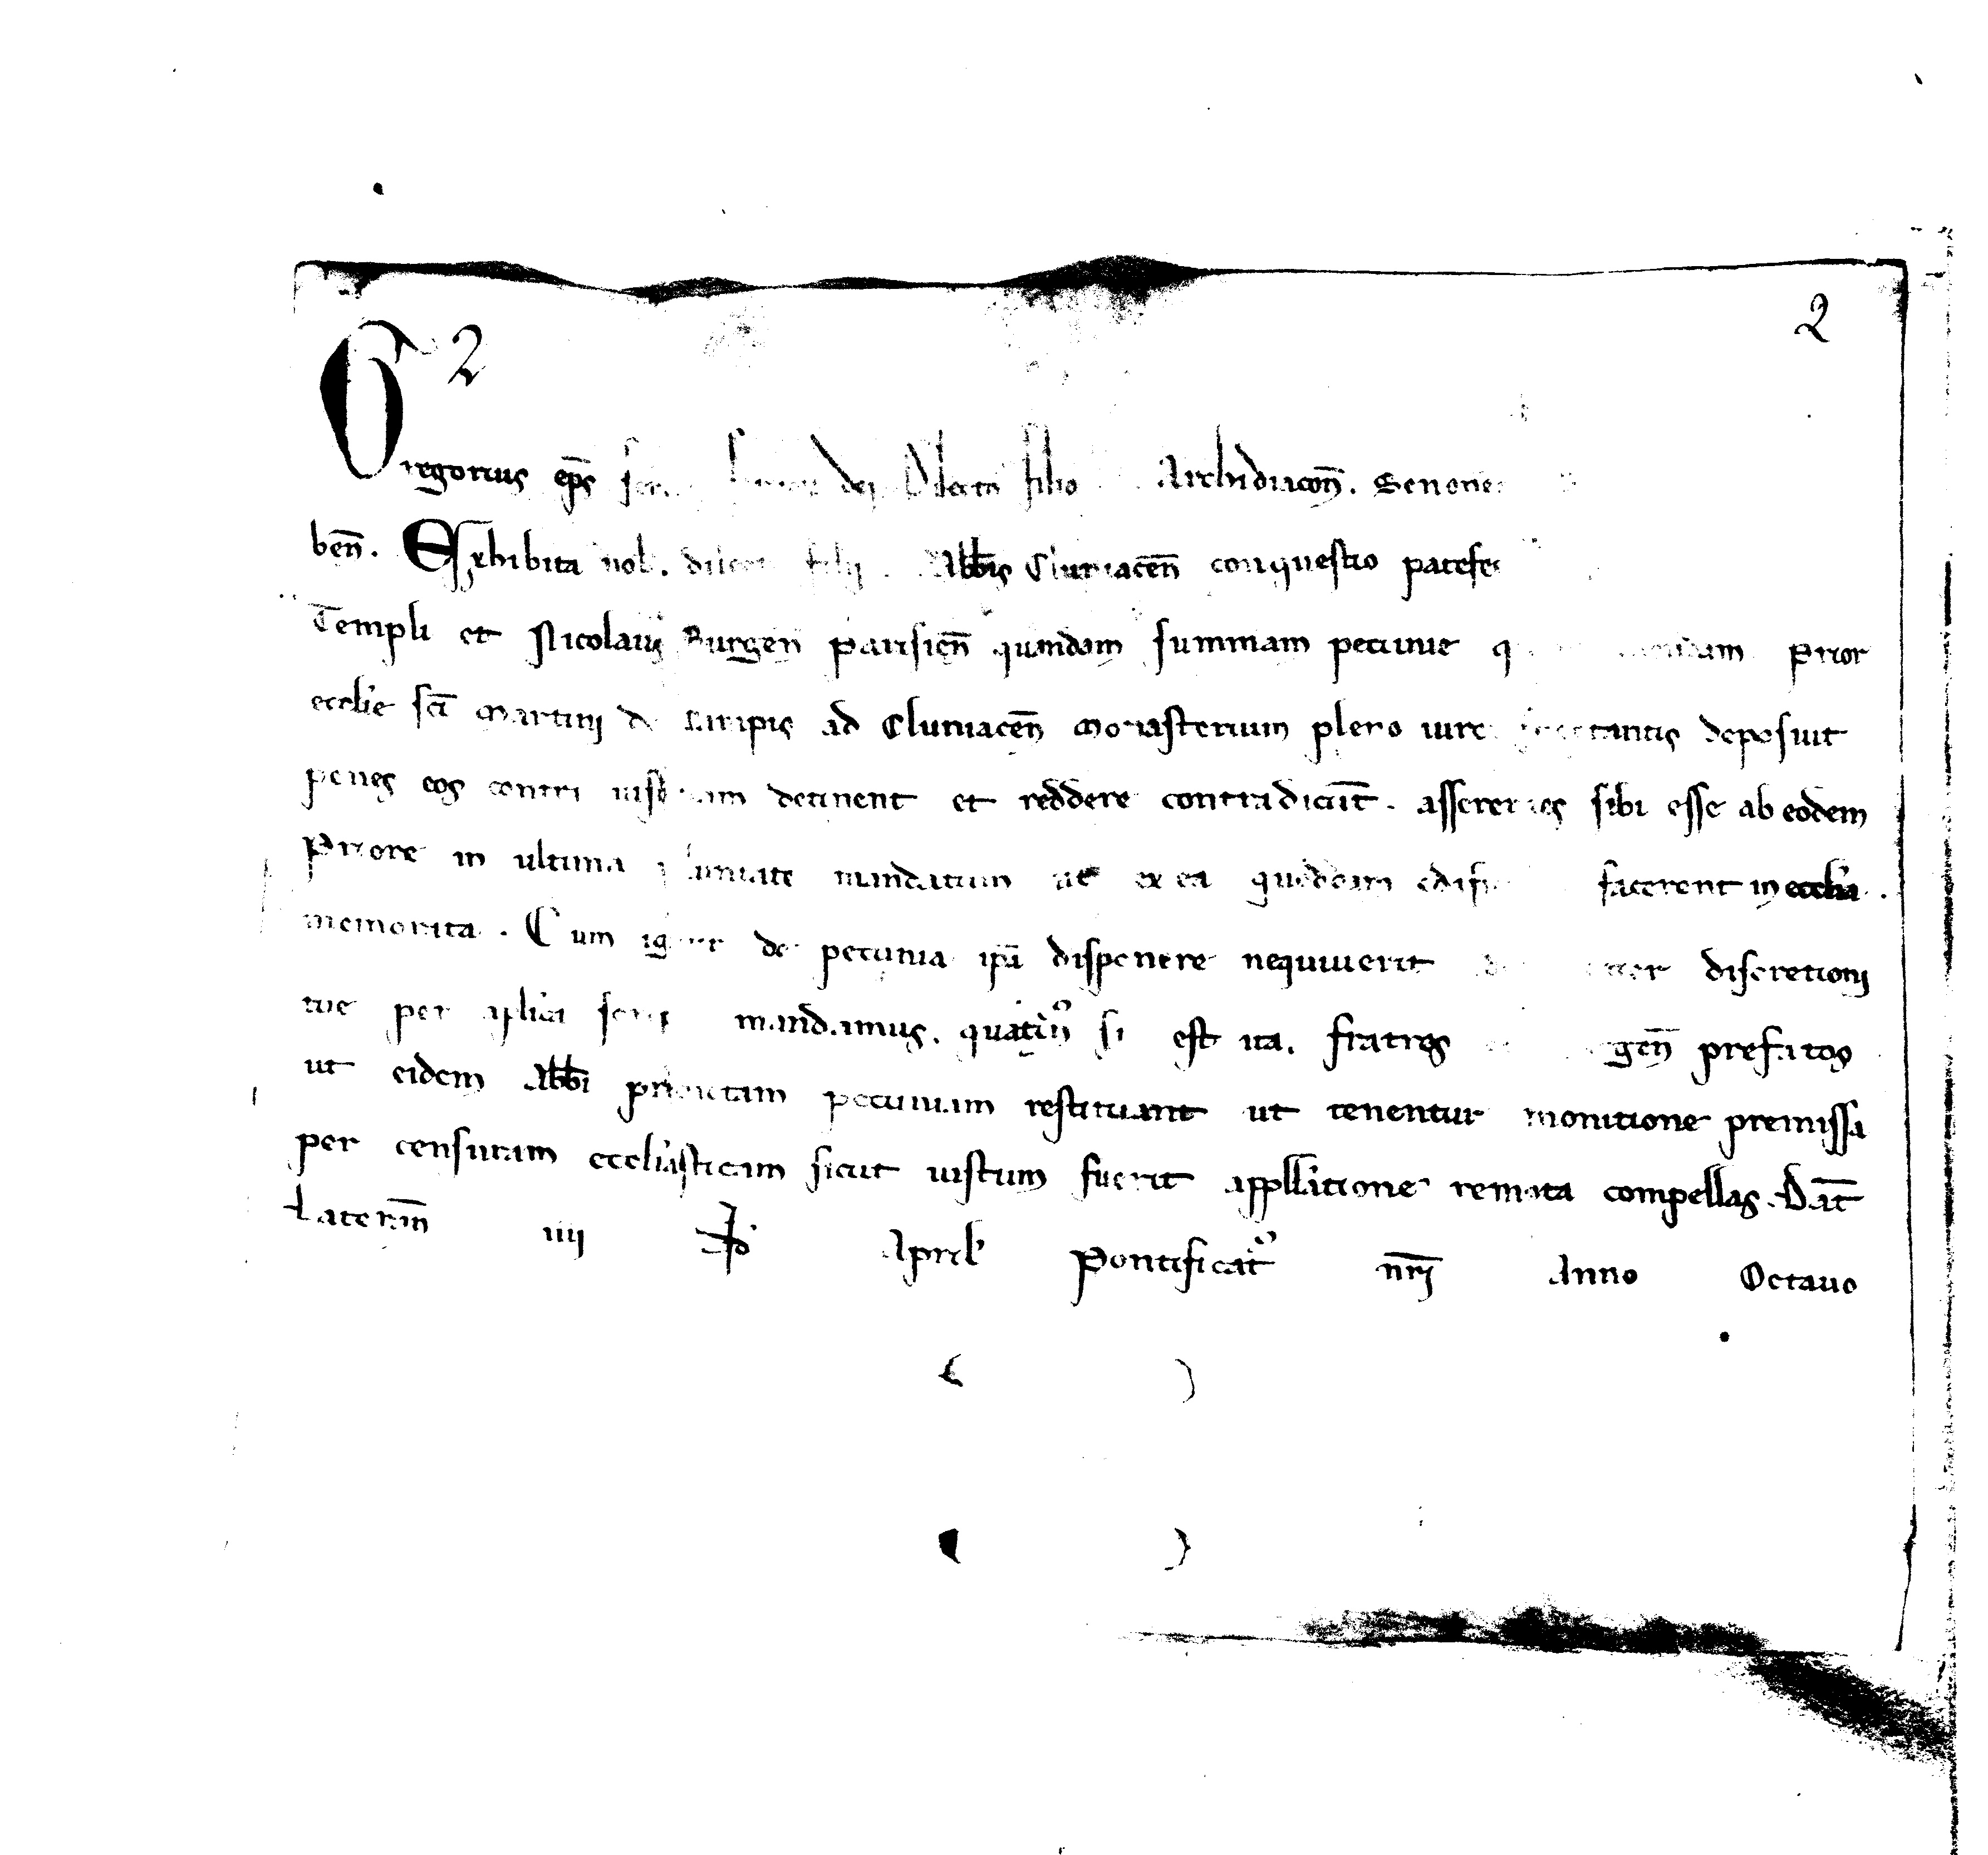 2 2
Gregorius ep̄s dei Dilecto filio Archidiacoñ. Senoneñ
beñ. Exhibita nob. dilecti filij Abb̄is Cluniaceñ conquestio patefe
Templi et Nicolaus Burgeñ Parisieñ quandam summam pecunie quondam Prior
ecclie sc̄i Martini de Campis ad Cluniaceñ Monasterium pleno iure spectantis deposuit
penes eos contra iustitiam detinent et reddere contradicūt. asserentes sibi esse ab eodem
Priore in ultima uoluntate mandatum ut ex ea quoddam edificium facerent in ecclia.
memorata. Cum igitur de pecunia ip̄a disponere nequiuerit discretioni
tue per aplica scripta mandamus. quatin̄ si est ita. fratres burgeñ prefatos
ut eidem Abb̄i predictam pecuniam restituant ut tenentur monitione premissa
per censuram eccliasticam sicut iustum fuerit appllatione remota compellas. Dat̄
Laterañ iiij Id' April' Pontificat̄ nr̄i Anno Octauo